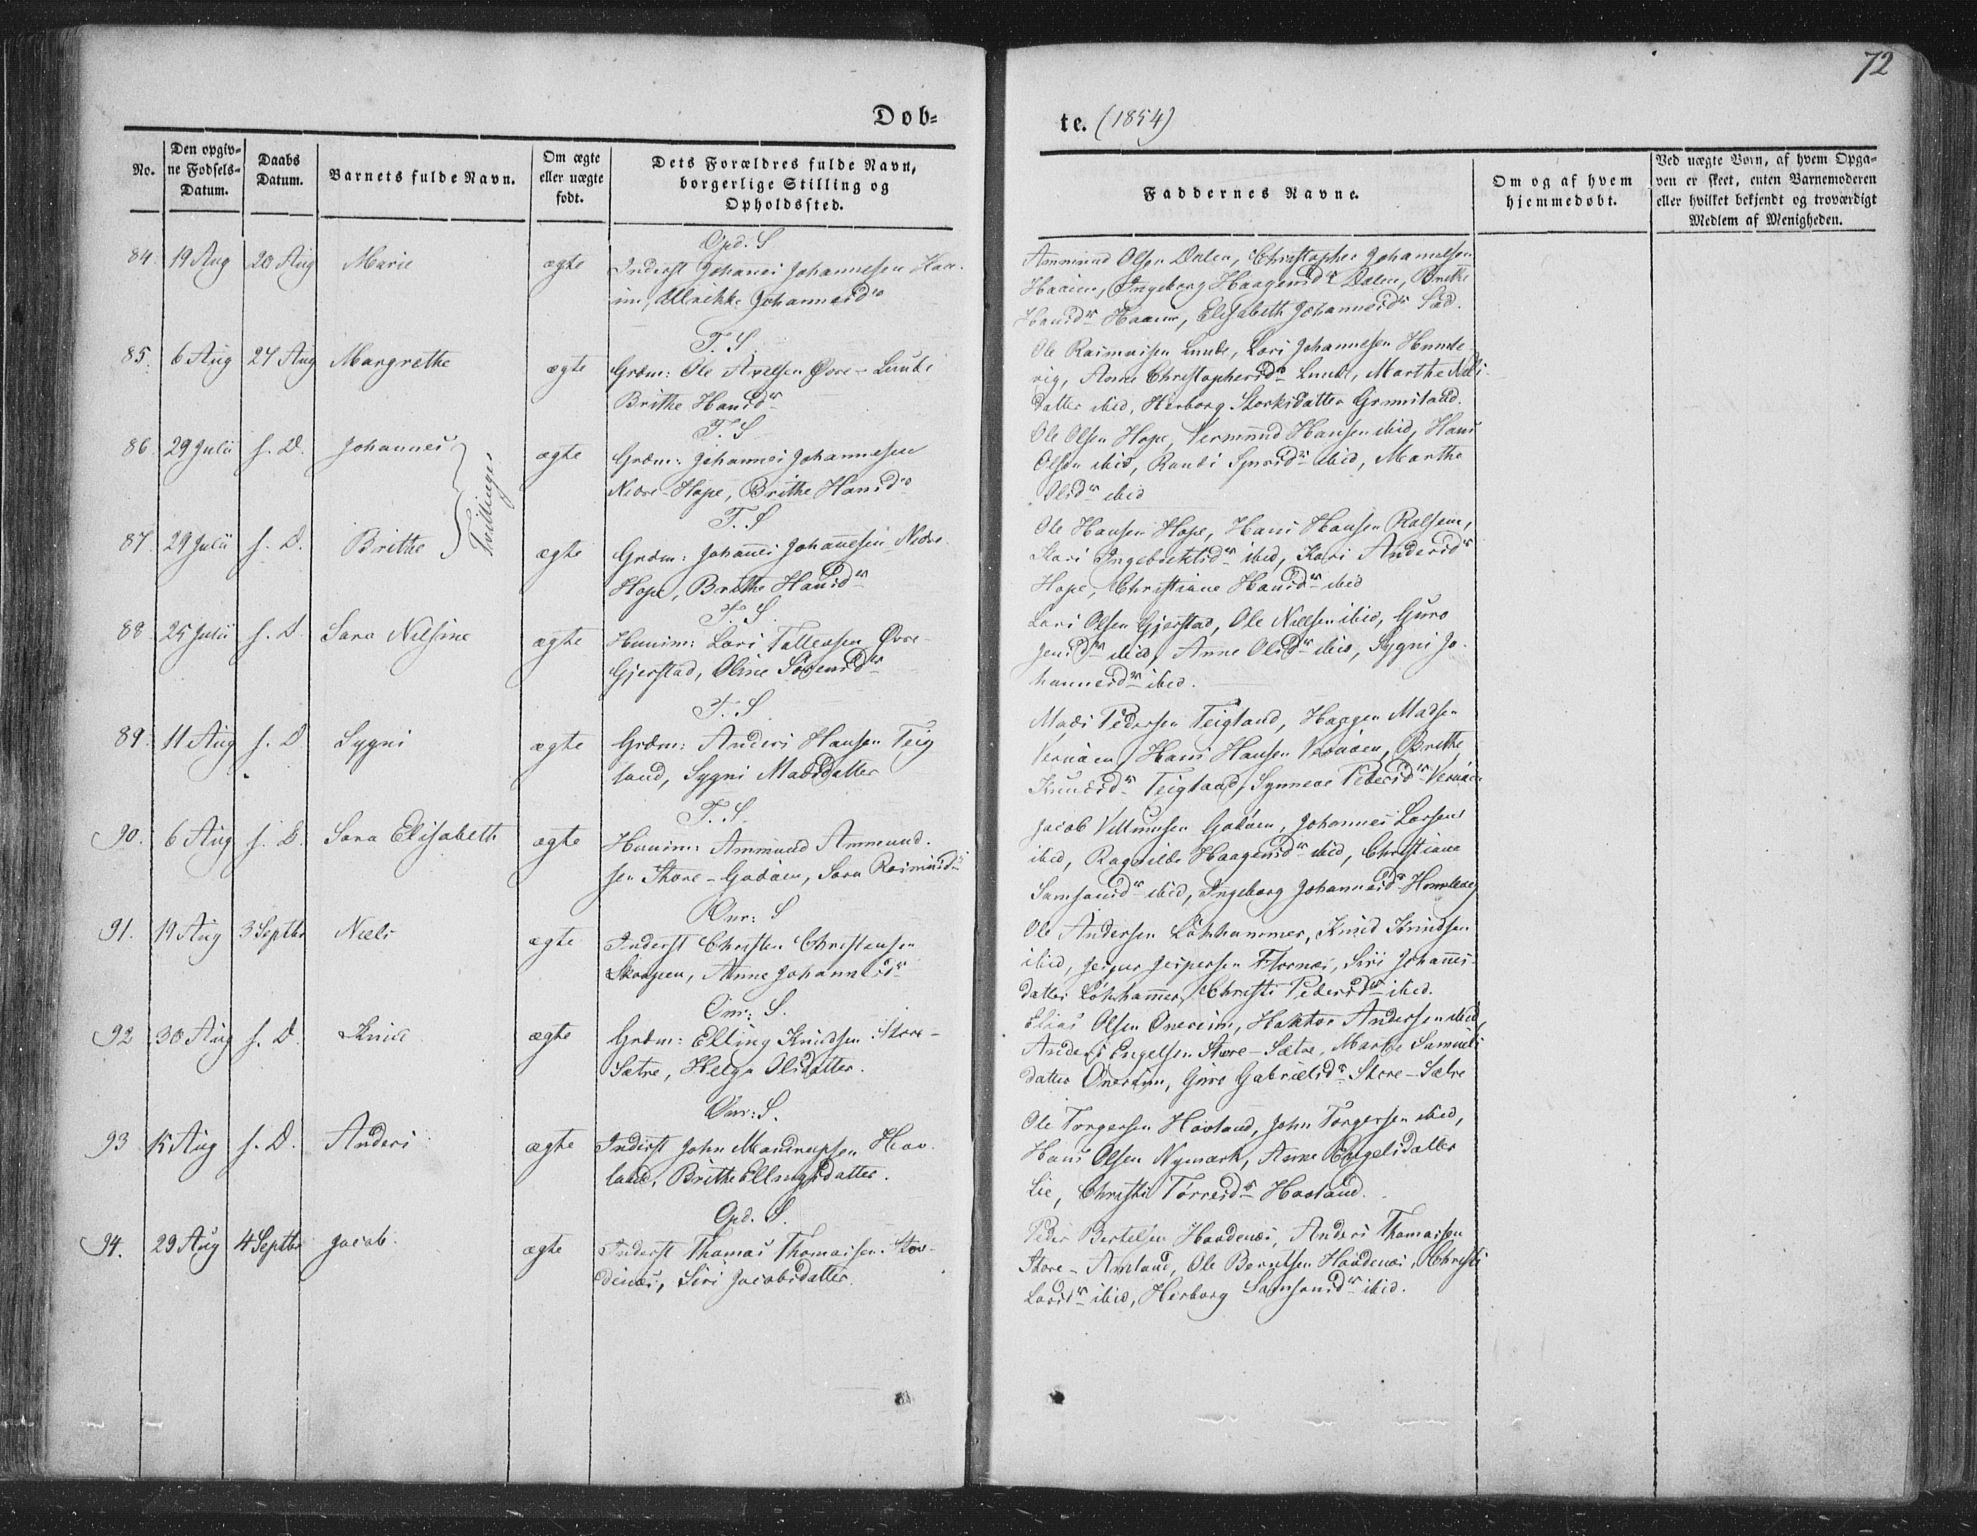 72
Døb-
te. (1854)
No.
Den opgiv-
ne Fødsels-
Datum.
Daabs
Datum.
Barnets fulde Navn.
Om ægte
eller uægte
født.
Dets Forældres fulde Navn,
borgerlige Stilling og
Opholdssted.
Faddernes Navne.
Om og af hvem
hjemmedøbt.
Ved uægte Børn, af hvem Opga-
ven er skeet, enten Barnemoderen
eller hvilket bekjendt og troværdigt
Medlem af Menigheden.
Opd. S
84. 19 Aug 20 Aug Marie ægte Inderst Johanes Johannesen
Johannesd.r
Ammund Olsen Dalen, Christopher Johannesen
Ingeborg Haagensd.r Dalen, Brithe
Hansd.r Elisabeth Johannesd.r
F. S.
85. 6 Aug 27 Aug Margrethe ægte Grdm: Ole Øvre-Lunde
Brithe Hansd.r
Ole Rasmusen Lunde, Lars Johannesen Hunde-
vig, Anne Christophersd.r Lunde, Marthe Nils-
datter ibid, Herborg Storksdatter Grimstand.
F. S
86. 29 Julii s. D. Johannes ægte Grdm: Johannes Johannesen
Nedre-Hope, Brithe Hansd.r
Tvillinger
Ole Olsen Hope, Vermund Hansen ibid, Hans
Olsen ibid, Randi ibid, Marthe
Olsd.r ibid
F. S
87. 29 Julii s. D. Brithe ægte Grdm: Johanes Johanesen Nedre-
Hope, Brithe Hansd.r
Ole Hansen Hope, Hans Hansen
Kari ibid, Kari Andersd.r
Hope, Christiane Hansd.r ibid
F. S.
88. 25 Julii s. D. Sara Nilsine ægte Huusm: Lars Tollevsen Øvre-
Gjerstad, Oline Sørensd.r
Lars Olsen Gjerstad, Ole Nielsen ibid, Guro
Jensd.r ibid, Anne Olsd.r ibid, Sygni Jo-
hannesd.r ibid.
F. S
89. 11 Aug s. D Sygni ægte Grdm: Anders Hansen Teig
land, Sygni Madsdatter
Mads Pedersen Teigland, Haggen Madsen
Vernøen, Hans Hansen Vernøen, Brithe
Knudsd.r Teigland, Synneve Pedersd.r Vernøen
F. S.
90. 6 Aug s. D. Sara Elisabeth ægte Huusm: Ammund Ammund-
sen Store-Godøen, Sara Rasmusd.r
Jacob Godøen, Johannes Larsen
ibid, Ragnilde Haagensd.r ibid, Christiane
Samsonsd.r ibid, Ingeborg Johannesd.r
Onr: S
91. 19 Aug 3 Septbr Niels ægte Inderst Christen Christensen
Skorpen, Anne Johannesd.r
Ole Andersen Løkhammer, Knud Knudsen
ibid, Jesper Jespersen Flornes, Siri Johannes-
datter Løkhammer, Christi Pedersd.r ibid.
Onr: S.
92 30 Aug s. D. Knud ægte Grdm: Elling Knudsen Store-
Sætre, Helga Olsdatter.
Elias Olsen Onereim, Haktor Andersen ibid,
Anders Engelsen Store-Sætre, Marte Samuels
datter Onereim, Guro Gabrielsd.r Store-Sætre
Onr: S.
93 15 Aug s. D. Anders ægte Inderst John Mandrupsen Hav-
land, Brithe Ellingsdatter.
Ole Torgersen Havland, John Torgersen ibid,
Hans Olsen Nymark, Anne Engelsdatter
Lie, Christi Tørresd.r Havland.
Opd. S.
94. 29 Aug 4 Septbr Jacob. ægte Inderst Thomas Thomassen
Siri Jacobsdatter.
Peder Bertelsen Anders Thomassen
Store-Amland, Ole Berntsen Christi
Larsd.r ibid, Herborg Samsonsd.r ibid.